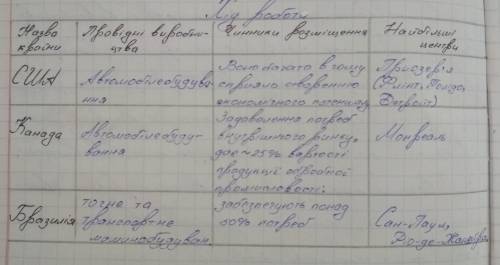 Хід роботи
Назва країни Провідні виробництва Чинники розміщення Найбільші центри
США Автомобілебудування Воно багато в чому сприяло створенню економічного потенціалу Приозер'я (Флінт, Толідо, Детройт)
Канада Автомобілебудування Задоволення потреб внутрішнього ринку, дає ~25% вартості продукції обробної промисловості.
Монреаль
Бразилія точне та транспортне машинобудуван. забезпечують понад 50% потреб Сан-Паулу, Ріо-де-Жанейро